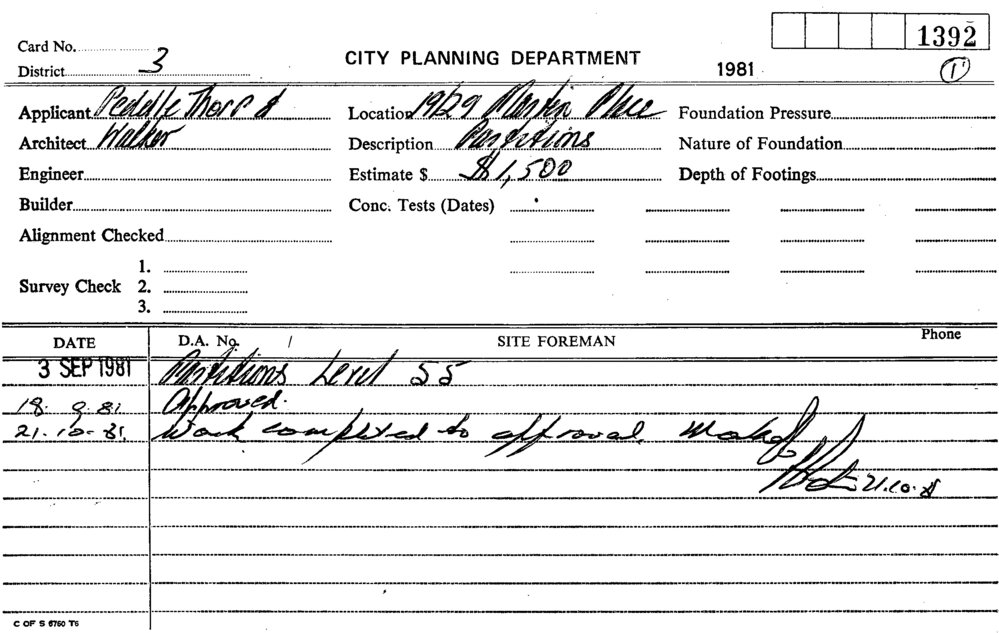 1392
Card No.
CITY PLANNING DEPARTMENT
District 3
1981
1
Applicant Peddle Thorp &
Location 19/29 Martin Place
Foundation Pressure
Architect Walker
Description Partitions
Nature of Foundation
Engineer
Estimate $ $1,500
Depth of Footings
Builder
Conc. Tests (Dates)
Alignment Checked
1.
Survey Check 2.
3.
DATE D.A. No. / SITE FOREMAN Phone
3 SEP 1981 Partitions Level 55
18.9.81 Approved.
21.10.81. Work completed to approval.
21.10.81
C OF S 6760 T6